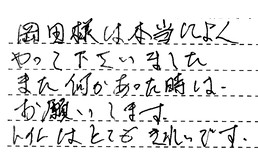 岡田様は本当によく
やって下さいました
また何かあった時は、
お願いします
トイレはとてもきれいです.